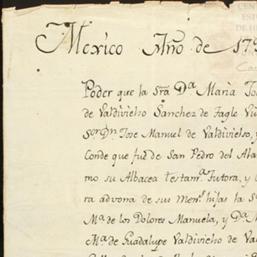 Mexico Año de 17
Poder que la Sra Da Maria
de Valdivielso Sanchez de Tagle
Sor Dn Jose Manuel de Valdivielso, y
Conde que fué de San Pedro del
mo su Albacea testama Tutora, y
ra advona de sus menrs hijas la
Ma de los Dolores Manuela, y Da
Ma de Guadalupe Valdivielso de